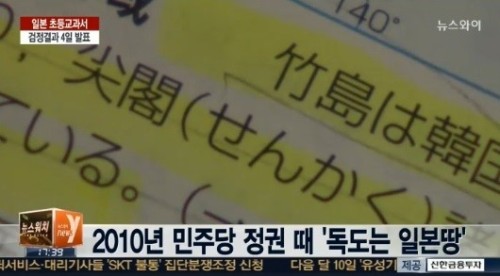 일본 초등교과서
검정결과 4일 발표
뉴스와이
140°
竹島は韓国
、尖閣(せんかく)
ている。
뉴스워치
new y
17:39
2010년 민주당 정권 때 '독도는 일본땅'
서비스·대리기사들 'SKT 불통' 집단분쟁조정 신청
다음 달 8일 '유성기
제공
신한금융투자